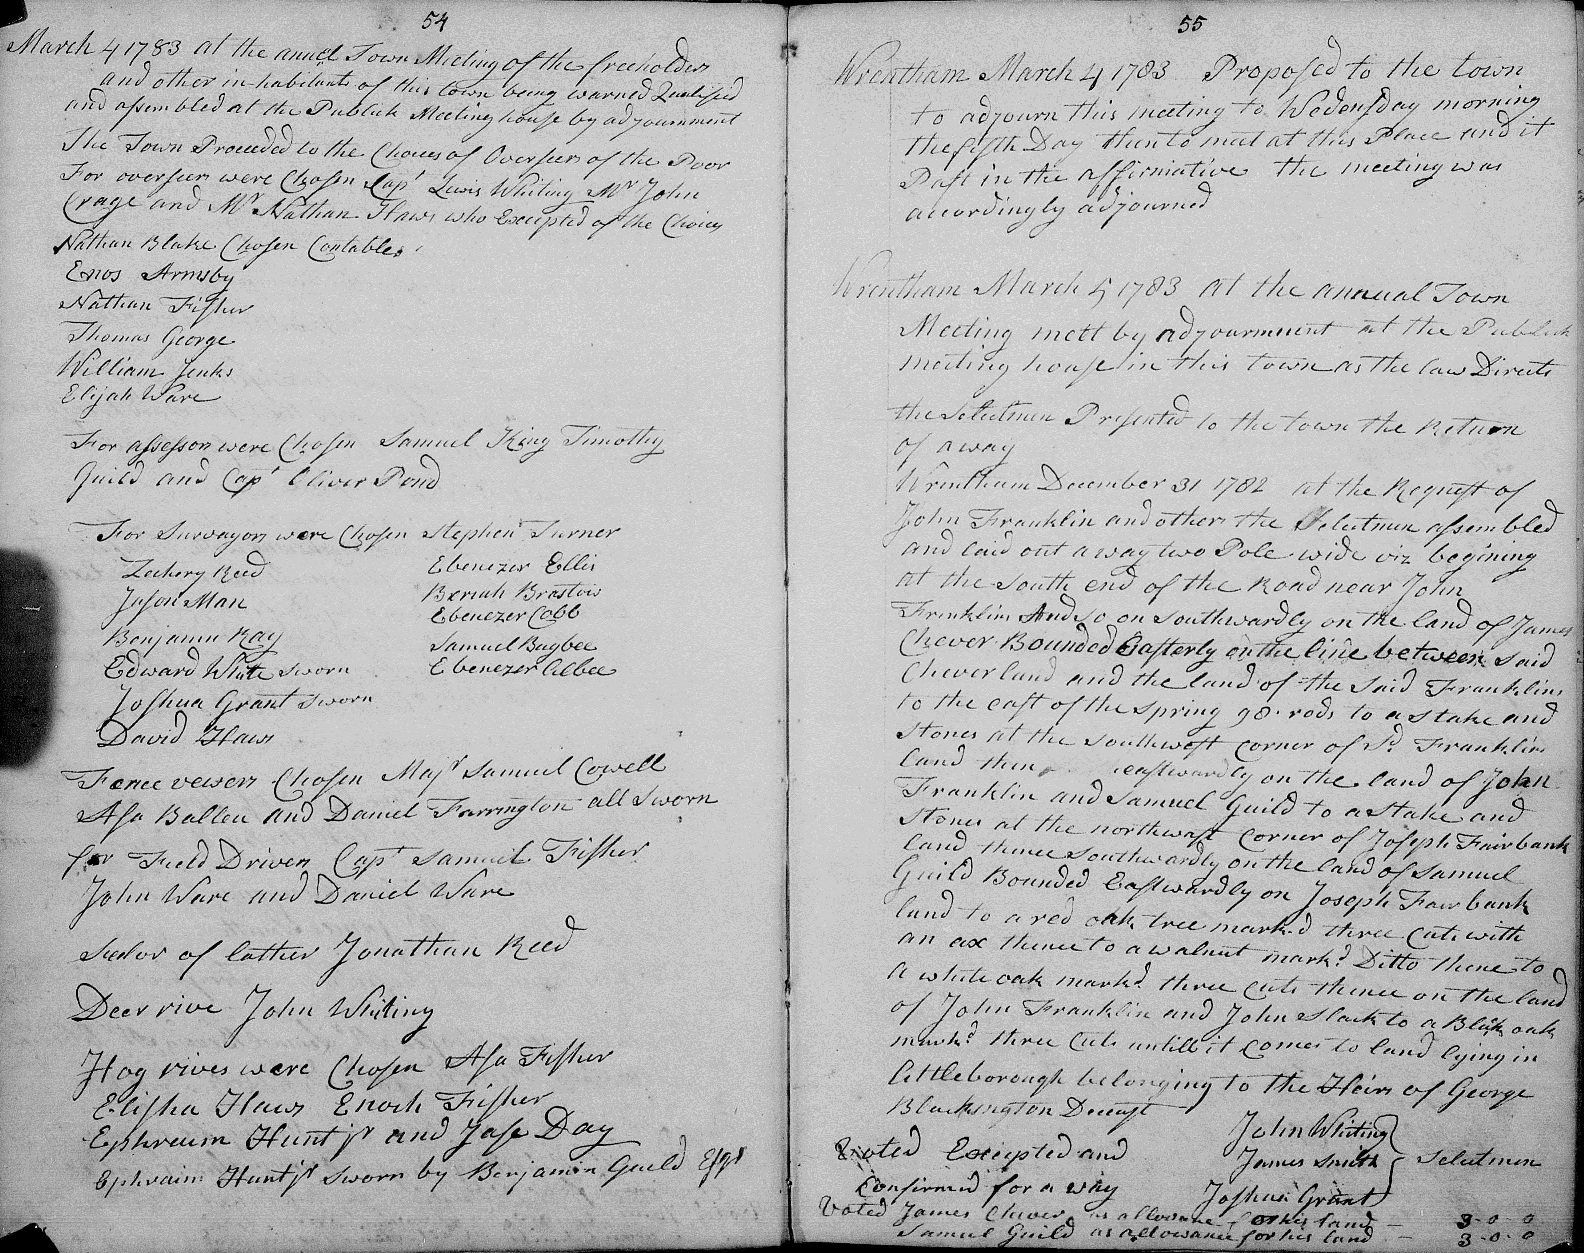 54
March 4 1783 at the annuel Town Meeting of the freeholders
and other in-habitants of this town being warned Qualified
and assembled at the Publick Meeting house by adjournment
The Town Proceeded to the Choices of Overseers of the Poor
For overseers were Chosen Capt Lewis Whiting Mr John
Crage and Mr Nathan Haws who Excepted of the Choices
Nathan Blake Chosen Contables
Enos Armsby
Nathan Fisher
Thomas George
William Jenks
Elijah Ware
For assessors were Chosen Samuel King Timothy
Guild and Capt Oliver Pond
For Survayors were Chosen Stephen Turner
Zechery Reed Ebenezer Ellis
Jason Man Beriah Brastow
Benjamin Ray Ebenezer Cobb
Edward White Sworn Samuel Bugbee
Joshua Grant Sworn Ebenezer Albee
David Haws
Fence vewers Chosen Majr Samuel Cowell
Asa Ballou and Daniel Farrington all Sworn
for Field Drivers Capt Samuel Fisher
John Ware and Daniel Ware
Sealor of leather Jonathan Reed
Deer rive John Whiting
Hog rives were Chosen Asa Fisher
Elisha Haws Enoch Fisher
Ephraim Hunt jr and Jose Day
Ephraim Hunt jr Sworn by Benjamin Guild Esqr
55
Wrentham March 4 1783 Proposed to the town
to adjourn this meeting to Wedensday morning
the fifth Day then to meet at this Place and it
Past in the affirmative the meeting was
accordingly adjourned
Wrentham March 5 1783 at the annual Town
Meeting mett by adjournment at the Publick
meeting house in this town as the law Directs
the Selectmen Presented to the town the Return
of a way
Wrentham December 31 1782 at the Request of
John Franklin and others the Selectmen assembled
and laid out a way two Pole wide viz begining
at the South end of the Road near John
Franklins And so on Southwardly on the land of James
Chever Bounded Easterly on the line between said
Chever land and the land of the Said Franklins
to the east of the Spring 98 rods to a Stake and
Stones at the Southwest corner of Sd Franklins
land eastwardly on the land of John
Franklin and Samuel Guild to a Stake and
Stones at the northwast corner of Joseph Fairbank
land thence Southwardly on the land of Samuel
Guild Bounded Eastwardly on Joseph Fairbank
land to a red oak tree mark.d three Cuts with
an ax thence to a walnut markd Ditto thence to
a white oak markd three cuts thence on the land
of John Franklin and John Slack to a Black oak
markd three Cuts untill it comes to land lying in
Attleborough belonging to the Heirs of George
Blackington Deceast
John Whiting
Voted Excepted and James Smith Selectmen
Confirmed for a way Joshua Grant
Voted James Chever as allowance for his land 3-0-0
Samuel Guild as allowance for his land 3-0-0